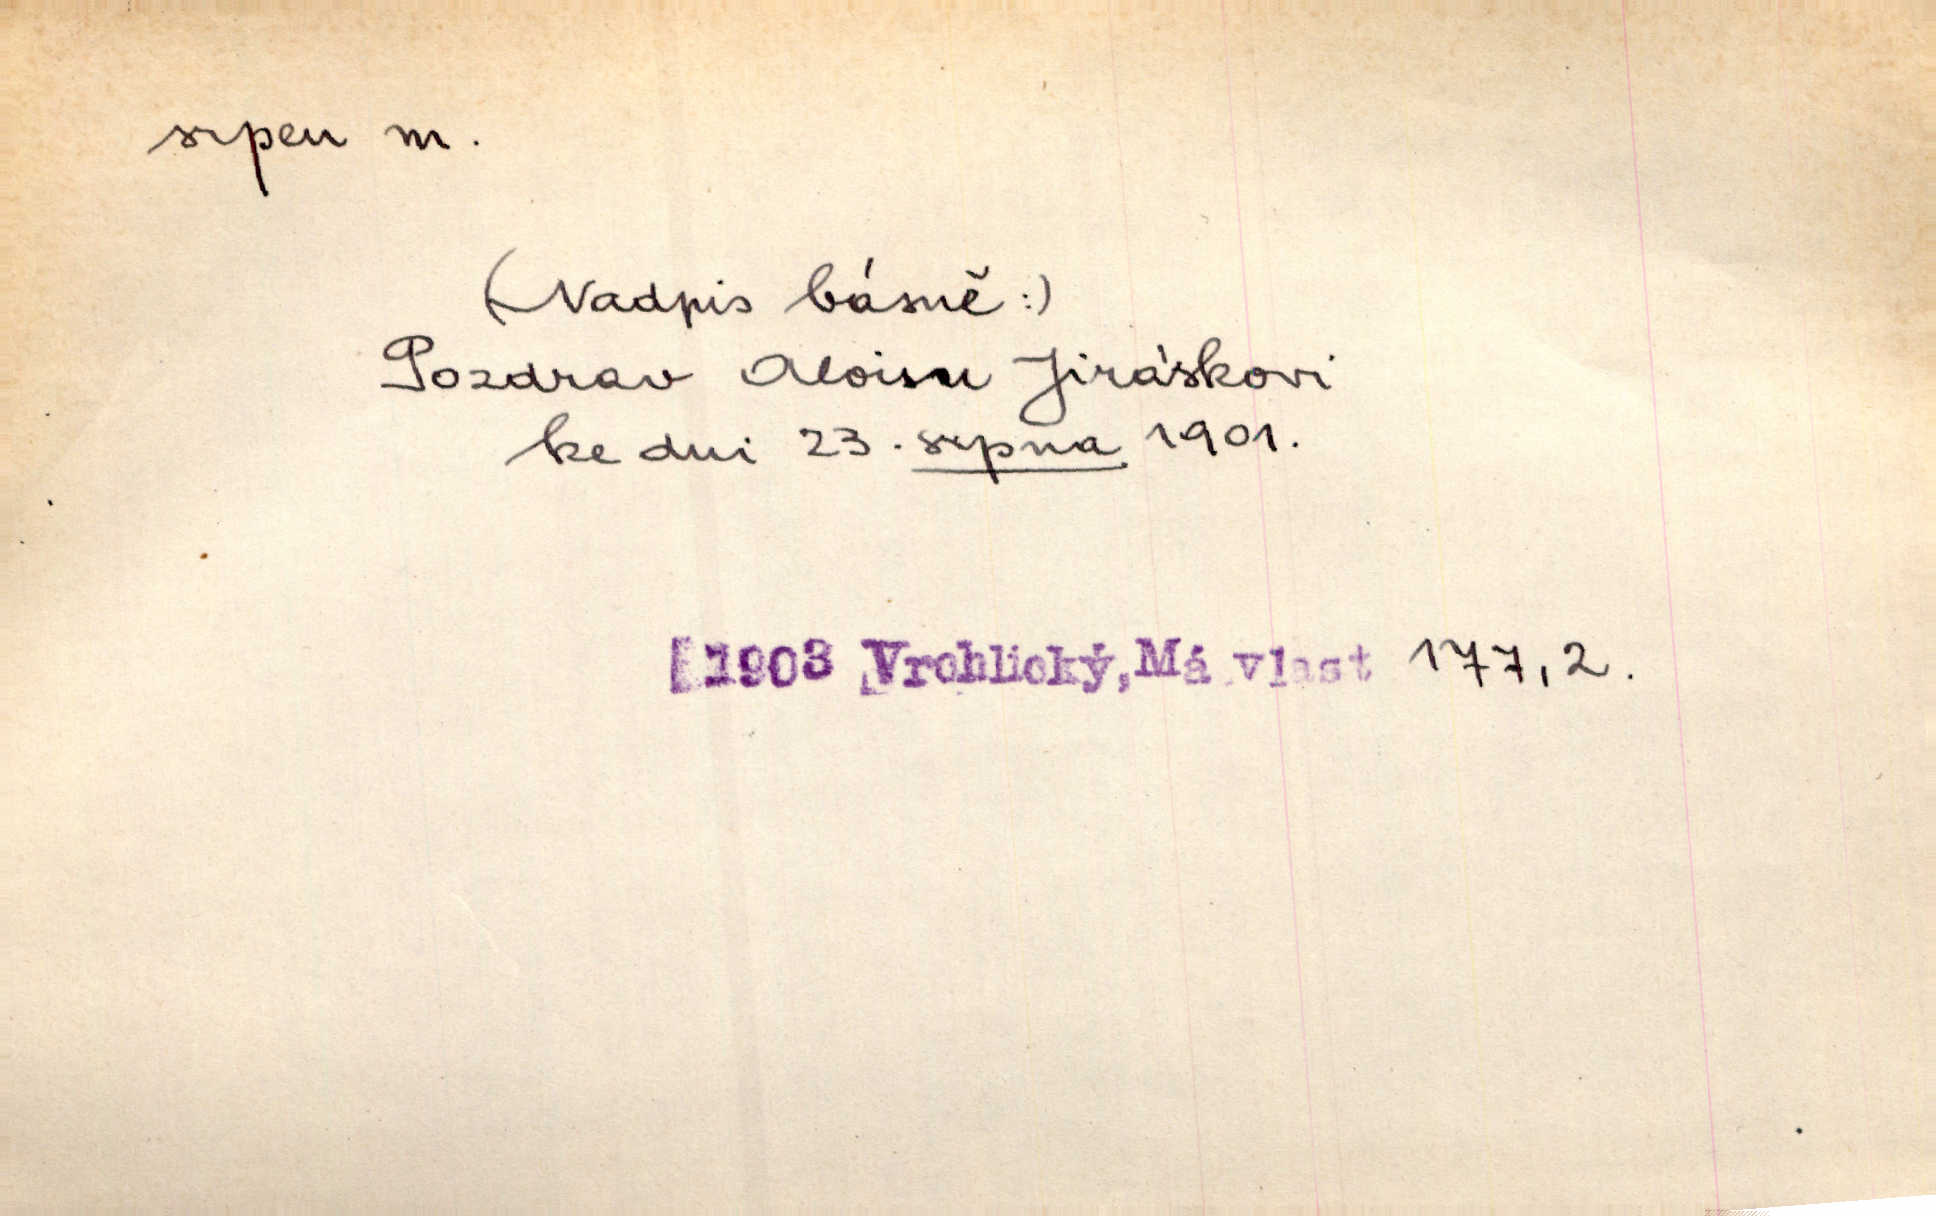 srpen m.
(Nadpis básně:)
Pozdrav Aloisu Jiráskovi
ke dni 23. srpna 1901.
[1903 Vrchlický, Má vlast 177, 2.